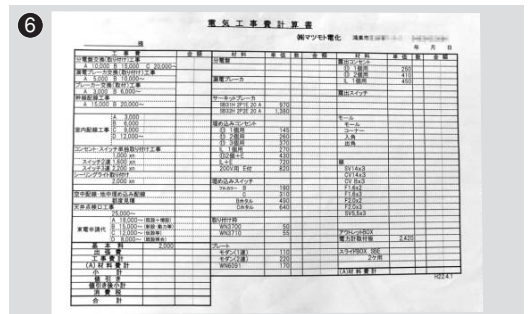 6
電気工事費計算書
様
㈱マツモト電化
年 月 日
工事費 金額 材料 単価 数 金額 材料 単価 数 金額
分電盤交換(取り付け)工事
A 10,000 B 15,000 C 20,000~
漏電ブレーカ交換(取付け)工事
A 5,000 B 10,000~
ブレーカー交換(取付)工事
A 3,000 B 6,000~
幹線配線工事
A 15,000 B 20,000~
室内配線工事
A 3,000
B 6,000
C 9,000
D 12,000~
コンセント・スイッチ単独取り付け工事
1,000 xn
スイッチ2連 1,600 xn
スイッチ3連 2,200 xn
シーリングライト取付け
2,000 xn
空中配線・地中埋め込み配線
都度見積
天井点検口工事
25,000~
東電申請代
A 18,000~
B 15,000~
C 12,000~
D 8,000~
基本料 2,000
出張費
工事費計
(A)材料費計
小計
値引き
値引き後小計
消費税
合計
分電盤
漏電ブレーカ
サーキットブレーカ
SB31H 2P1E 20 A 970
SB32H 2P2E 20 A 1,380
埋め込みコンセント
① 1個用 145
① 2個用 260
① 3個用 370
L 1個用 270
①2個+E 430
L+E 720
200V用 E付 820
埋め込みスイッチ
B 180
C 310
Bホタル 490
Cホタル 640
取り付け枠
WN3700 50
WN3710 55
プレート
モダン(1連) 110
モダン(2連) 220
WN6091 170
露出コンセント
① 1個用 260
① 2個用 410
L 1個用 450
露出スイッチ
モール
モール
コーナー
入角
出角
線
SV14x3
CV14x3
CV 8x3
F1.6x2
F1.6x3
F2.0x2
F2.0x3
SV5.5x3
アウトレットBOX
電力計取付板 2,420
スライドBOX SBE
2ケ用
(A)材料費計
H22.4.1